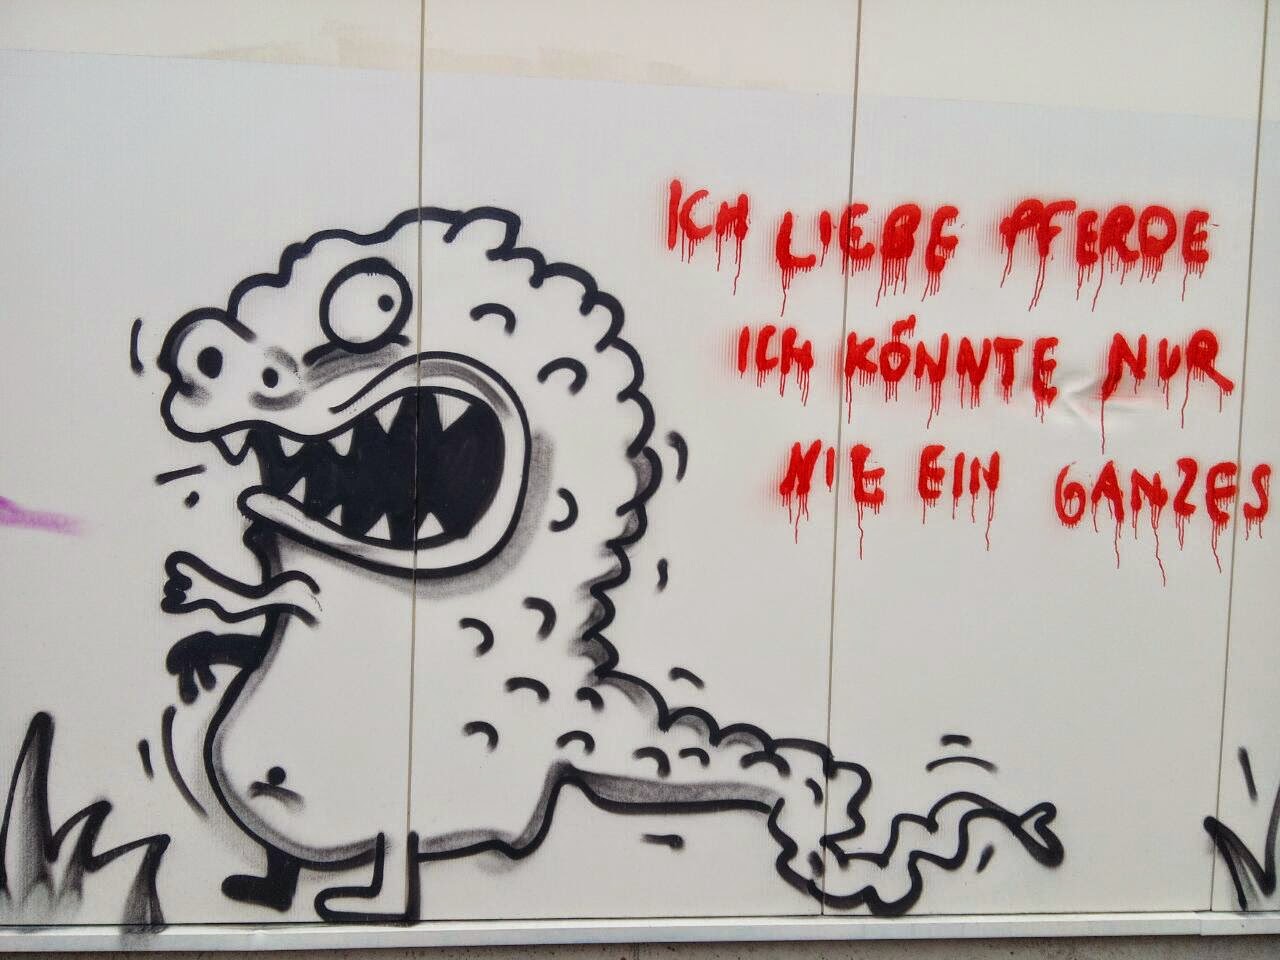 ICH LIEBE PFERDE
ICH KÖNNTE NUR
NIE EIN GANZES